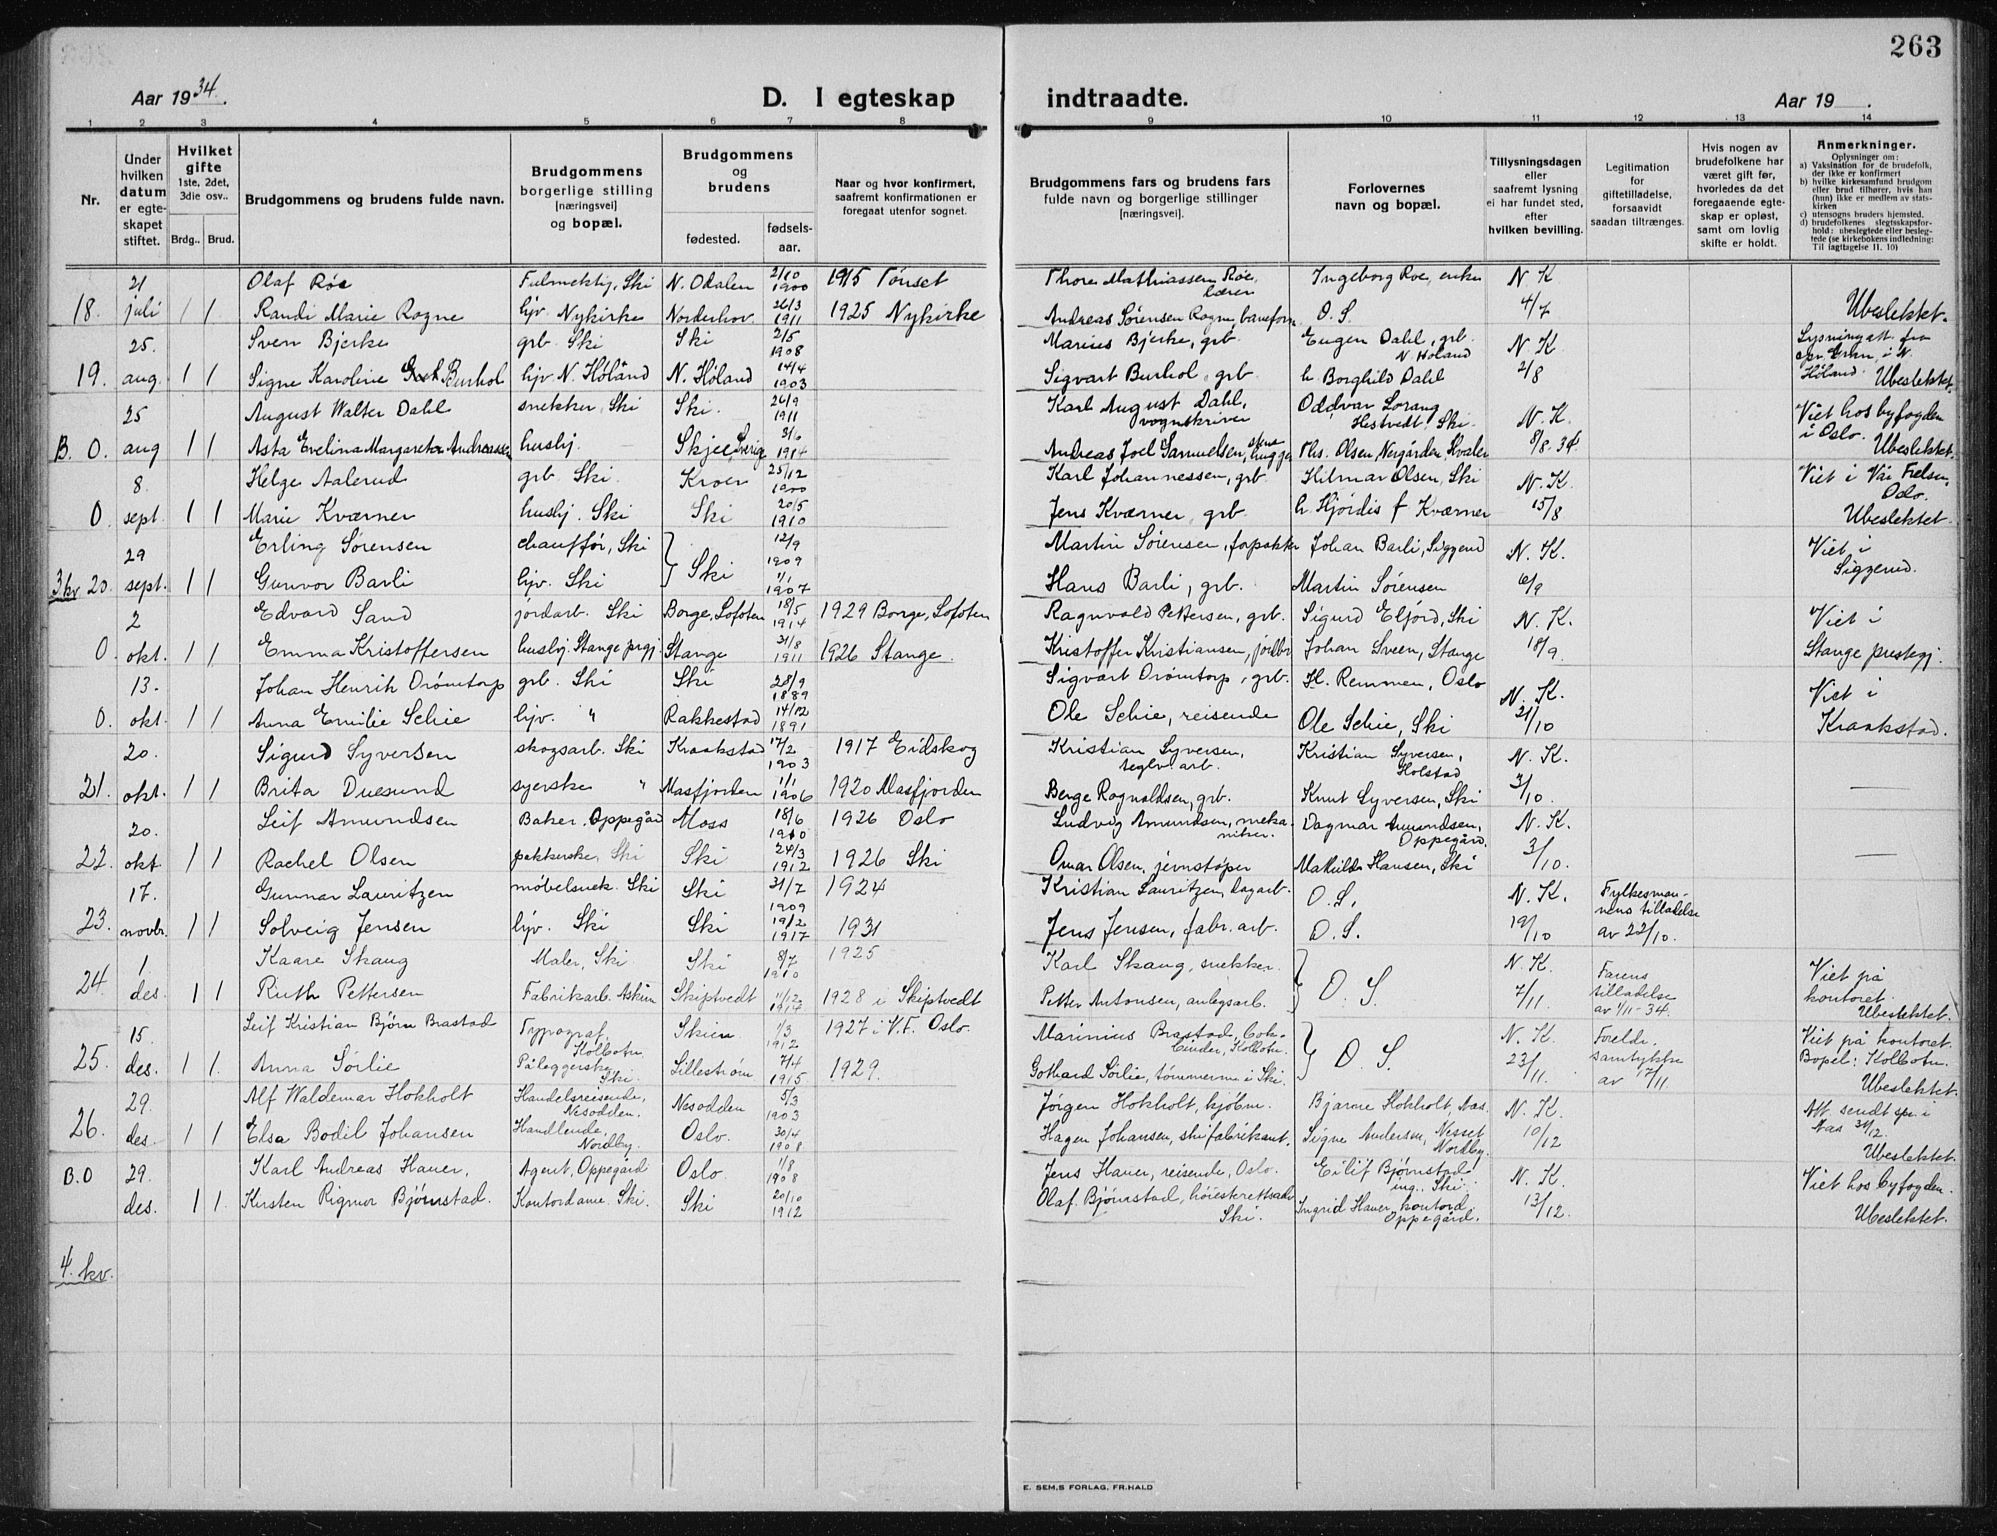 263
Aar 1934.
D. I egteskap indtraadte.
Aar 19 .
1 2 3 4 5 6 7 8 9 10 11 12 13 14
Nr.
Under hvilken datum er egteskapet stiftet.
Hvilket gifte 1ste, 2det, 3die osv..
Brdg.. Brud.
Brudgommens og brudens fulde navn.
Brudgommens borgerlige stilling [næringsvei] og bopæl.
Brudgommens og brudens
fødested. fødselsaar.
Naar og hvor konfirmert, saafremt konfirmationen er foregaat utenfor sognet.
Brudgommens fars og brudens fars fulde navn og borgerlige stillinger [næringsvei].
Forlovernes navn og bopæl.
Tillysningsdagen eller saafremt lysning ei har fundet sted, efter hvilken bevilling.
Legitimation for giftetilladelse, forsaavidt saadan tiltrænges.
Hvis nogen av brudefolkene har været gift før, hvorledes da det foregaaende egteskap er opløst, samt om lovlig skifte er holdt.
Anmerkninger.
Oplysninger om:
a) Vaksination for de brudefolk, der ikke er konfirmert
b) hvilke kirkesamfund brudgom eller brud tilhører, hvis han (hun) ikke er medlem av statskirken
c) utensogns bruders hjemsted.
d) brudefolkenes slegtsskapsforhold: ubeslegtede eller beslegtede (se kirkebokens indledning: Til iagttagelse II. 10)
21 Olaf Røe Fulmektig, Ski N. Odalen 2/10 1900 1915 Tønset Thore Mathiassen Røe, lærer Ingeborg Roe, enke N. K
18. juli 1 1 Randi Marie Rogne hjv. Nykirke Norderhov 26/3 1911 1925 Nykirke Andreas Sørensen Rogne, baneform. O. S. 4/7 Ubeslektet.
25. Sven Bjerke grb. Ski Ski 2/5 1908 Marius Bjerke, grb. Eugen Dahl, grb. N. Høland N. K Lysningatt. fra
19. aug. 1 1 Signe Karoline Burhol hjv. N. Høland N. Høland 14/4 1903 Sigvart Burhol, grb. h. Borghild Dahl 2/8 Høland. Ubeslektet.
25 August Walter Dahl snekker, Ski Ski. 26/9 1911 Karl August Dahl, vognskriver Oddvar Lorang Hestvedt, Ski. N. K. Viet hos byfogden i Oslo.
B. 0 aug 1 1 Asta Evelina Margareta Andreassen husbj. Skjee, Sverig 3/6 1914 Andreas Joel Samuelsen, stenhugger Ths. Olsen, Nergården, Hvaler 8/8-34. Ubeslektet.
8. Helge Aalerud grb Ski. Kroer 25/12 1900 Karl Johannessen, grb. Hilmar Olsen, Ski N. K. Viet i Vår Frelser, Oslo.
0 sept. 1 1 Marie Kværner husbj. Ski Ski 20/5 1910 Jens Kværner, grb. h. Hjørdis f Kværner 15/8 Ubeslektet.
29 Erling Sørensen chauffør, Ski } Ski 12/9 1909 Martin Sørensen, forpakter Johan Barli, Siggerud N. K. Viet i
3 kv 20. sept. 1 1 Gunvor Barli hjv. Ski 1/1 1907 Hans Barli, grb. Martin Sørensen 6/9 Siggerud.
2 Edvard Sand jordarb. Ski Borge, Lofoten 18/5 1914 1929 Borge, Lofoten Ragnvald Pettersen, grb. Sigurd Elfjord, Ski N. K. Viet i
0. okt. 1 1 Emma Kristoffersen husbj. Stange prgj. Stange 31/8 1911 1926 Stange. Kristoffer Kristiansen, jordbr. Johan Sveen, Stange 18/9. Stange prestegj.
13. Johan Henrik Drømtorp grb. Ski Ski 28/9 1889 Sigvart Drømtorp, grb. H. Remmen, Oslo N. K. Viet i
0. okt. 1 1 Anna Emilie Schie hjv. " Rakkestad 14/12 1891 Ole Schie, reisende Ole Schie, Ski 21/10 Kraakstad.
20. Sigurd Syversen skogsarb. Ski Kraakstad 17/2 1903 1917 Eidskog Kristian Syversen, teglv. arb. Kristian Syversen, Holstad N. K.
21. okt. 1 1 Brita Duesund syerske " Masfjorden 1/1 1906 1920 Masfjorden Berge Ragnaldsen, grb. Knut Syversen, Ski 3/10. —
20. Leif Amundsen Baker. Oppegård Moss 18/6 1910 1926 Oslo Ludvig Amundsen, mekaniker. Dagmar Amundsen, Oppegård. N. K.
22. okt 1 1 Rachel Olsen pakkerske, Ski Ski 24/3 1912 1926 Ski Omar Olsen, jernstøper Mathilde Hansen, Ski 3/10. —
17. Gunnar Lauritzen møbelsnek. Ski Ski 31/7 1909 1924 Kristian Lauritzen, dagarb. O. S. N. K. Fylkesmannens tilladelse
23. novbr. 1 1 Solveig Jensen hjv. Ski Ski 19/2 1917 1931 Jens Jensen, fabr. arb. O. S. 19/10 av 22/10.
1 Kaare Skaug Maler, Ski. Ski 8/7 1910 1925 Karl Skaug, snekker. } O. S. N. K. Farens tilladelse Viet på kontoret.
24. des. 1 1 Ruth Pettersen Fabrikarb. Askim Skiptvedt 11/12 1914 1928 i Skiptvedt Petter Antonsen, anlegsarb. 7/11. av 1/11-34. Ubeslektet.
15. Leif Kristian Bjørn Brastad Typograf, Kolbotn. Skien 1/3 1912 1927 i V.F. Oslo. Marinius Brastad, bokbinder, Kolbotn. } O. S. N. K. Foreldr. samtykke Viet på kontoret.
25. des. 1 1. Anna Sørlie Påleggerske Ski. Lillestrøm 7/4 1915 1929. Gothard Sørlie, tømmerm. i Ski. 23/11. av 17/11. Bopel: Kolbotn. Ubeslektet.
29. Alf Waldemar Hokholt Handelsreisende, Nesodden. Nesodden 5/3 1903 Jørgen Hokholt, kjøbm. Bjarne Hokholt, Aas. N. K. Att. sendt spr. i
26. des. 1 1 Elsa Bodil Johansen Handlende, Nordby. Oslo. 30/4 1908 Hagen Johansen, skifabrikant. Signe Andersen, Nesset Nordby. 10/12 Aas 31/12. Ubeslektet.
B. 0 29. Karl Andreas Hauer, Agent, Oppegård Oslo. 1/8 1908 Jens Hauer, reisende, Oslo. Eilif Bjørnstad ing., Ski. N. K. Viet hos byfogden.
des. 1 1. Kirsten Rigmor Bjørnstad. Kontordame. Ski. Ski 20/10 1912 Olaf Bjørnstad, høiesterettsadv. Ski. Ingrid Hauer, kontord. Oppegård. 13/12. Ubeslektet.
4. kv.
E. SEM.S FORLAG, FR.HALD